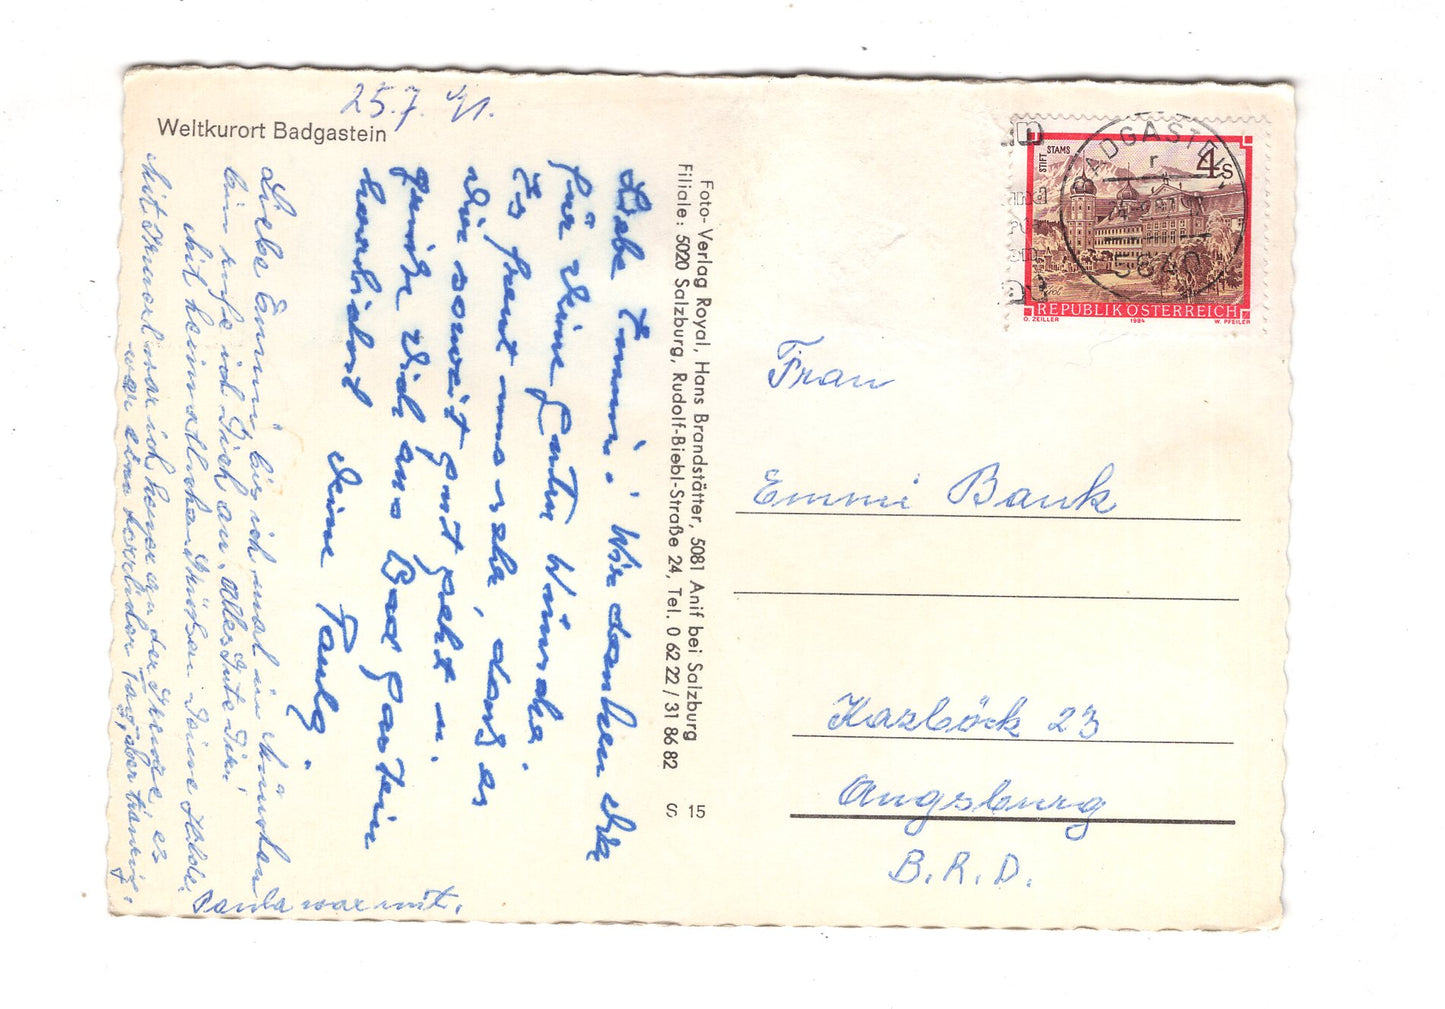 Weltkurort Badgastein
25.7.91.
Liebe Emmi! Wir danken Dir
für Deine guten Wünsche.
Es freut uns sehr, dass es
Dir soweit gut geht u.
grüße Dich aus Bad Gastein
herzlichst Deine Paula.
Liebe Emmi, bis ich mal in München
bin rufe ich Dich an, alles Gute Dir,
Mit heimatlichen Grüßen Deine Hilde.
Mit war ich heuer an der es
war ein Tag, aber traurig.
Paula war mit.
Foto-Verlag Royal, Hans Brandstätter, 5081 Anif bei Salzburg
Filiale: 5020 Salzburg, Rudolf-Biebl-Straße 24, Tel. 0 62 22 / 31 86 82
S 15
STIFT STAMS
4S
REPUBLIK ÖSTERREICH
O. ZEILLER 1984 W. PFEILER
BADGASTEIN
5640
Frau
Emmi Bank
Kazböck 23
Augsburg
B.R.D.